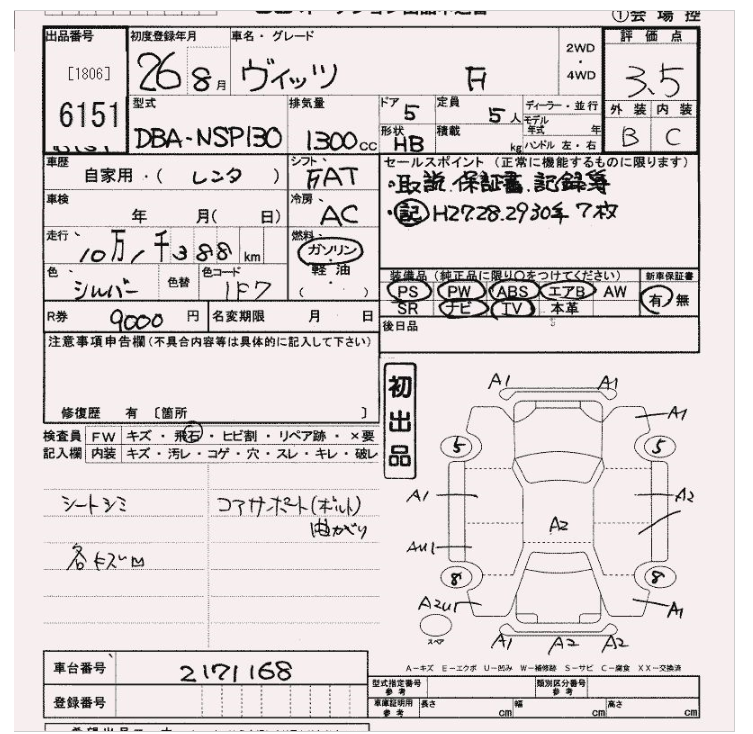 ①会場控
出品番号 初度登録年月 車名・グレード 2WD・4WD 評価点
[1806] 26 8月 ヴィッツ F 3.5
6151 型式 排気量 ドア 5 定員 5人 ディーラー・並行 外装 内装
モデル年式 年
DBA-NSP130 1300cc 形状 HB 積載 kg ハンドル 左・右 B C
車歴 自家用・( レンタ ) シフト FAT セールスポイント (正常に機能するものに限ります)
・取説.保証書.記録簿
車検 年 月( 日) 冷房 AC ・記 H27.28.29 30年 7枚
走行 10万1千388km 燃料 ガソリン・軽油 ( )
色 シルバー 色替 色コード 1F7 装備品 (純正品に限り○をつけてください) 新車保証書
PS PW ABS エアB AW 有・無
SR ナビ TV 本革
R券 9000円 名変期限 月 日 後日品
注意事項申告欄(不具合内容等は具体的に記入して下さい)
修復歴 有 〔箇所 〕
初出品
検査員 FW キズ・飛石・ヒビ割・リペア跡・×要
記入欄 内装 キズ・汚レ・コゲ・穴・スレ・キレ・破レ
シートシミ コアサポート(ボルト)
曲がり
各キズ凹
A1 A1
A1
5 5
A1 A2
A2
AU1
8 8
A2U1 A1
スペア
A1 A2 A2
A-キズ E-エクボ U-凹み W-補修跡 S-サビ C-腐食 XX-交換済
車台番号 2171168
型式指定番号 参考 類別区分番号 参考
登録番号 車庫証明用 参考 長さ cm 幅 cm 高さ cm